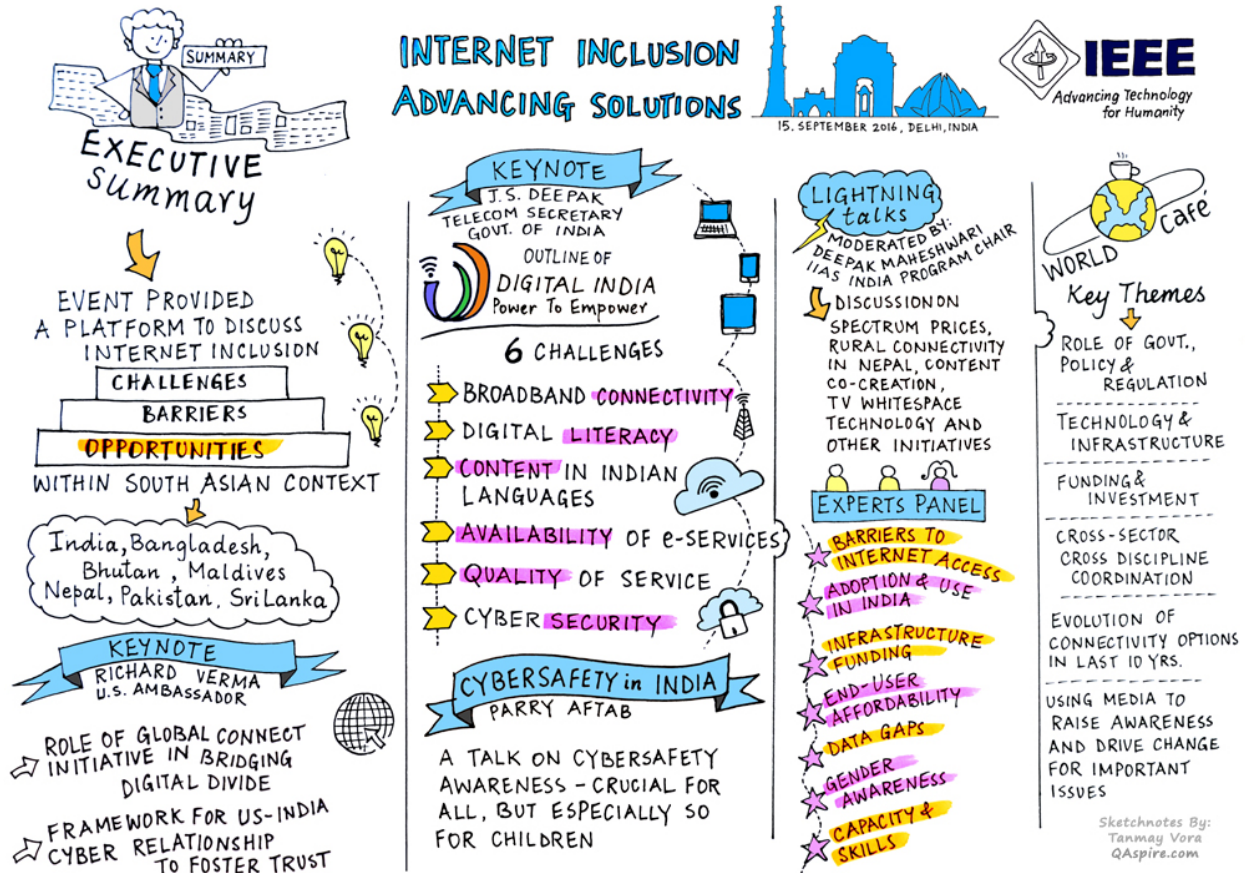 SUMMARY
EXECUTIVE
Summary
INTERNET INCLUSION
ADVANCING SOLUTIONS
15. SEPTEMBER 2016, DELHI, INDIA
IEEE
Advancing Technology
for Humanity
EVENT PROVIDED
A PLATFORM TO DISCUSS
INTERNET INCLUSION
CHALLENGES
BARRIERS
OPPORTUNITIES
WITHIN SOUTH ASIAN CONTEXT
India, Bangladesh,
Bhutan, Maldives
Nepal, Pakistan, SriLanka
KEYNOTE
RICHARD VERMA
U.S. AMBASSADOR
ROLE OF GLOBAL CONNECT
INITIATIVE IN BRIDGING
DIGITAL DIVIDE
FRAMEWORK FOR US-INDIA
CYBER RELATIONSHIP
TO FOSTER TRUST
KEYNOTE
J.S. DEEPAK
TELECOM SECRETARY
GOVT. OF INDIA
OUTLINE OF
DIGITAL INDIA
Power To Empower
6 CHALLENGES
BROADBAND CONNECTIVITY
DIGITAL LITERACY
CONTENT IN INDIAN
LANGUAGES
AVAILABILITY OF e-SERVICES
QUALITY OF SERVICE
CYBER SECURITY
CYBERSAFETY in INDIA
PARRY AFTAB
A TALK ON CYBERSAFETY
AWARENESS - CRUCIAL FOR
ALL, BUT ESPECIALLY SO
FOR CHILDREN
LIGHTNING
talks
MODERATED BY:
DEEPAK MAHESHWARI
IIAS INDIA PROGRAM CHAIR
DISCUSSION ON
SPECTRUM PRICES,
RURAL CONNECTIVITY
IN NEPAL, CONTENT
CO-CREATION,
TV WHITESPACE
TECHNOLOGY AND
OTHER INITIATIVES
EXPERTS PANEL
BARRIERS TO
INTERNET ACCESS
ADOPTION & USE
IN INDIA
INFRASTRUCTURE
FUNDING
END-USER
AFFORDABILITY
DATA GAPS
GENDER
AWARENESS
CAPACITY &
SKILLS
WORLD Café
Key Themes
ROLE OF GOVT.,
POLICY &
REGULATION
TECHNOLOGY &
INFRASTRUCTURE
FUNDING &
INVESTMENT
CROSS-SECTOR
CROSS DISCIPLINE
COORDINATION
EVOLUTION OF
CONNECTIVITY OPTIONS
IN LAST 10 YRS.
USING MEDIA TO
RAISE AWARENESS
AND DRIVE CHANGE
FOR IMPORTANT
ISSUES
Sketchnotes By:
Tanmay Vora
QAspire.com